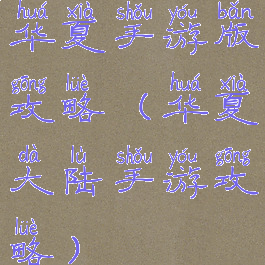 huá xià shǒu yóu bǎn
华夏手游版
gōng lüè huá xià
攻略(华夏
dà lù shǒu yóu gōng
大陆手游攻
lüè
略)